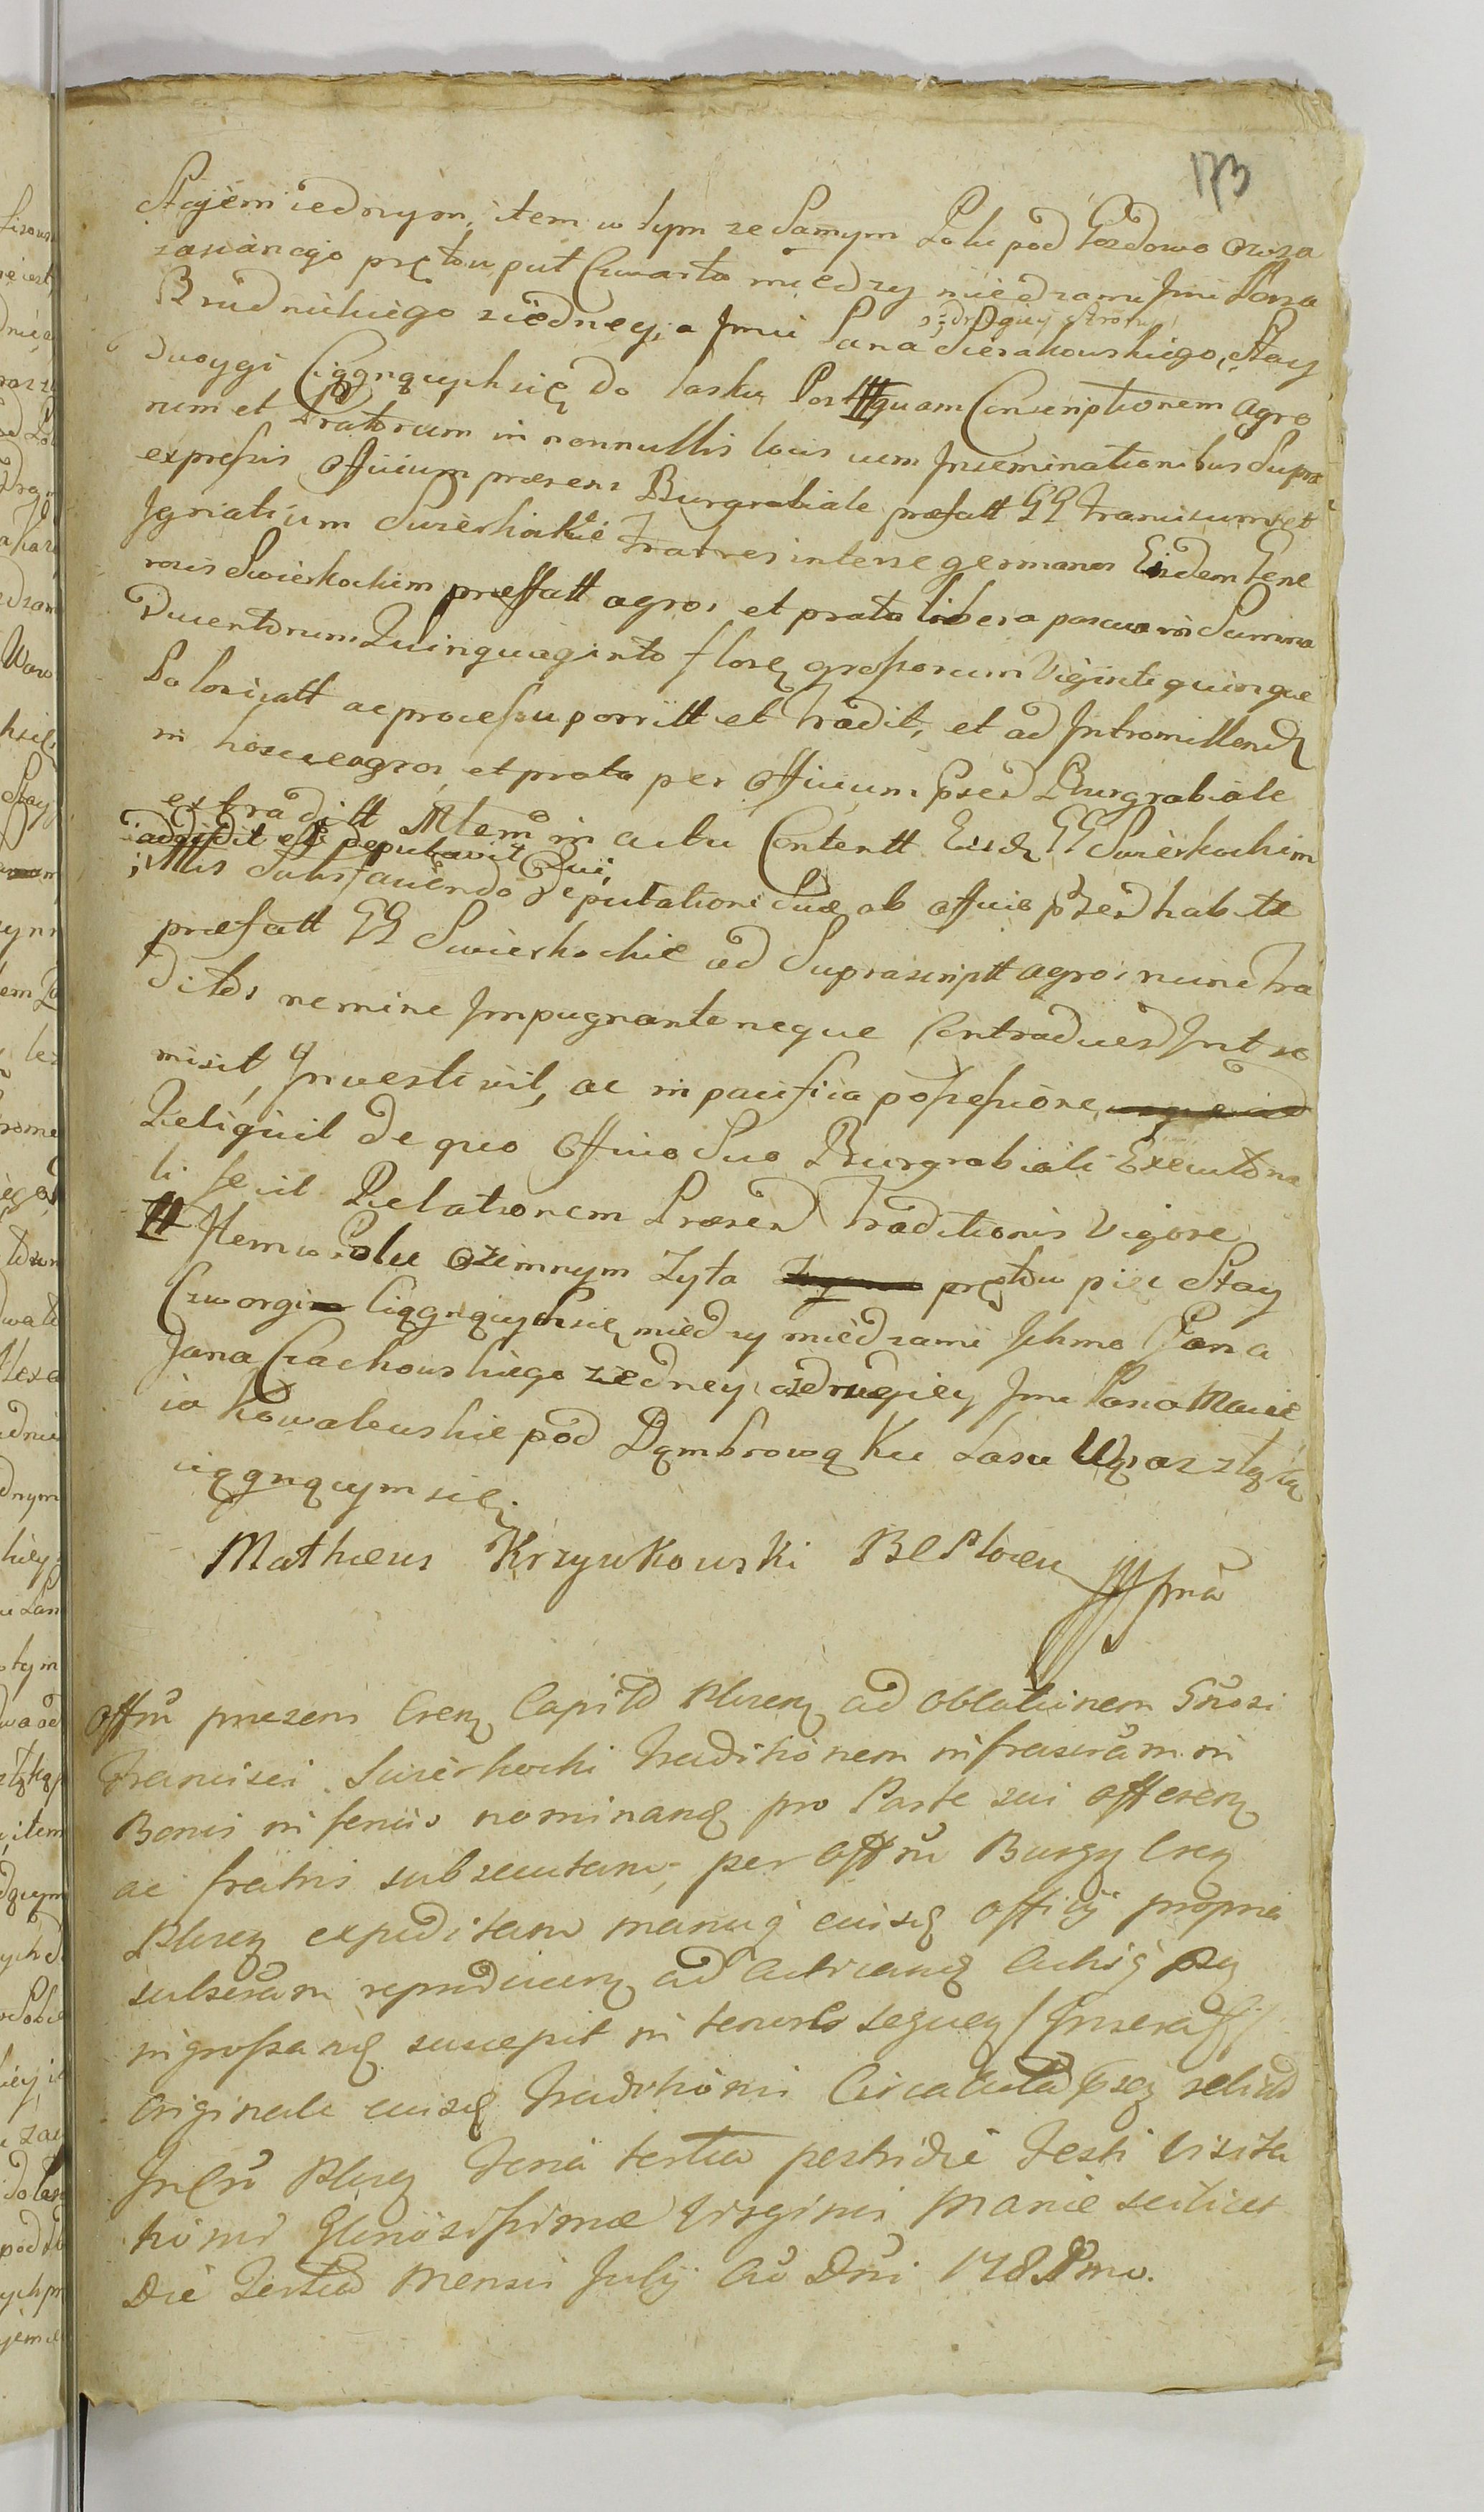 173
Stajem iednym, item w tym ze Samym Polu pod Gozdowo owsa
zasianego prętow puł Czwarta miedzy miedzami Jmci Pana
Brudnickiego ziedney, a Jmci Pana z drugiey strony Sierakowskiego, Stay
Dwoygi Ciągnących się do lasku Post ## quam Conscriptionem agro
rum et Pratorum in nonnullis locis cum Inseminationibus Supra
expressis Officium præsens Burgrabiale præfatt GG Franciscum et
Ignatium Swierkockie Fratres interse germanos Eisdem Gene
rosis Swierkockim præffatt agros et prata libera pascua in Summa
Ducentorum Quinquaginta floren grossorum Viginti quinque
Polonicatt ac processu porritt et tradit, et ad Intromittend
in hosce agros et prata per Officium præs Burgrabiale
extraditt Mtem in actu Contentt Eisd GG Swierkockim
addidit et deputavit Qui,
illis Satisfaciendo Deputationi Suæ ab officio præs habitæ
præfatt GG Swierkockie ad Suprascriptt agros nunc tra
ditos nemine Impugnante neque Contradicen Intro
misit, Investivit, ac in pacifica possessione
Reliquit de quo Officio Suo Burgrabiali Executoria
li fecit Relationem Præsen Traditionis Vigore
## Item w Polu ozimnym Zyta prętow pięc Stay
Czworgi Ciągnących się miedzy miedzami Jchmo Pana
Jana Czachowskiego ziedney a zdrugiey Jmci Pana Macie
ia Kowalewskie pod Dąmbrową Ku Lasu Wąwoz z łąką
ciągnącym się.
Matheus Krzywkowski BCPlocen mpria
Offm præsens Cren Capitt Plocen ad Oblationem Gnosi
Francisci Swierkocki Traditionem infrascram in
Bonis inferius nominand pro Parte sui offeren
ac fratris subsecutam, per Offm Burg Cren
Plocen expeditam manuq eiusd Officij propria
subscram reproducen ad acticand Actisq præn
ingrossand suscepit in tenore sequen / Inseratur /
Originale eiusd Traditionis Circa Acta præn relict
Incro Plocen Feria tertia postridie Festi Visita
tionis Gloriosissimæ Virginis Mariæ scilicet
Die Tertia Mensis Julij Ao Dni 178 Pmo.